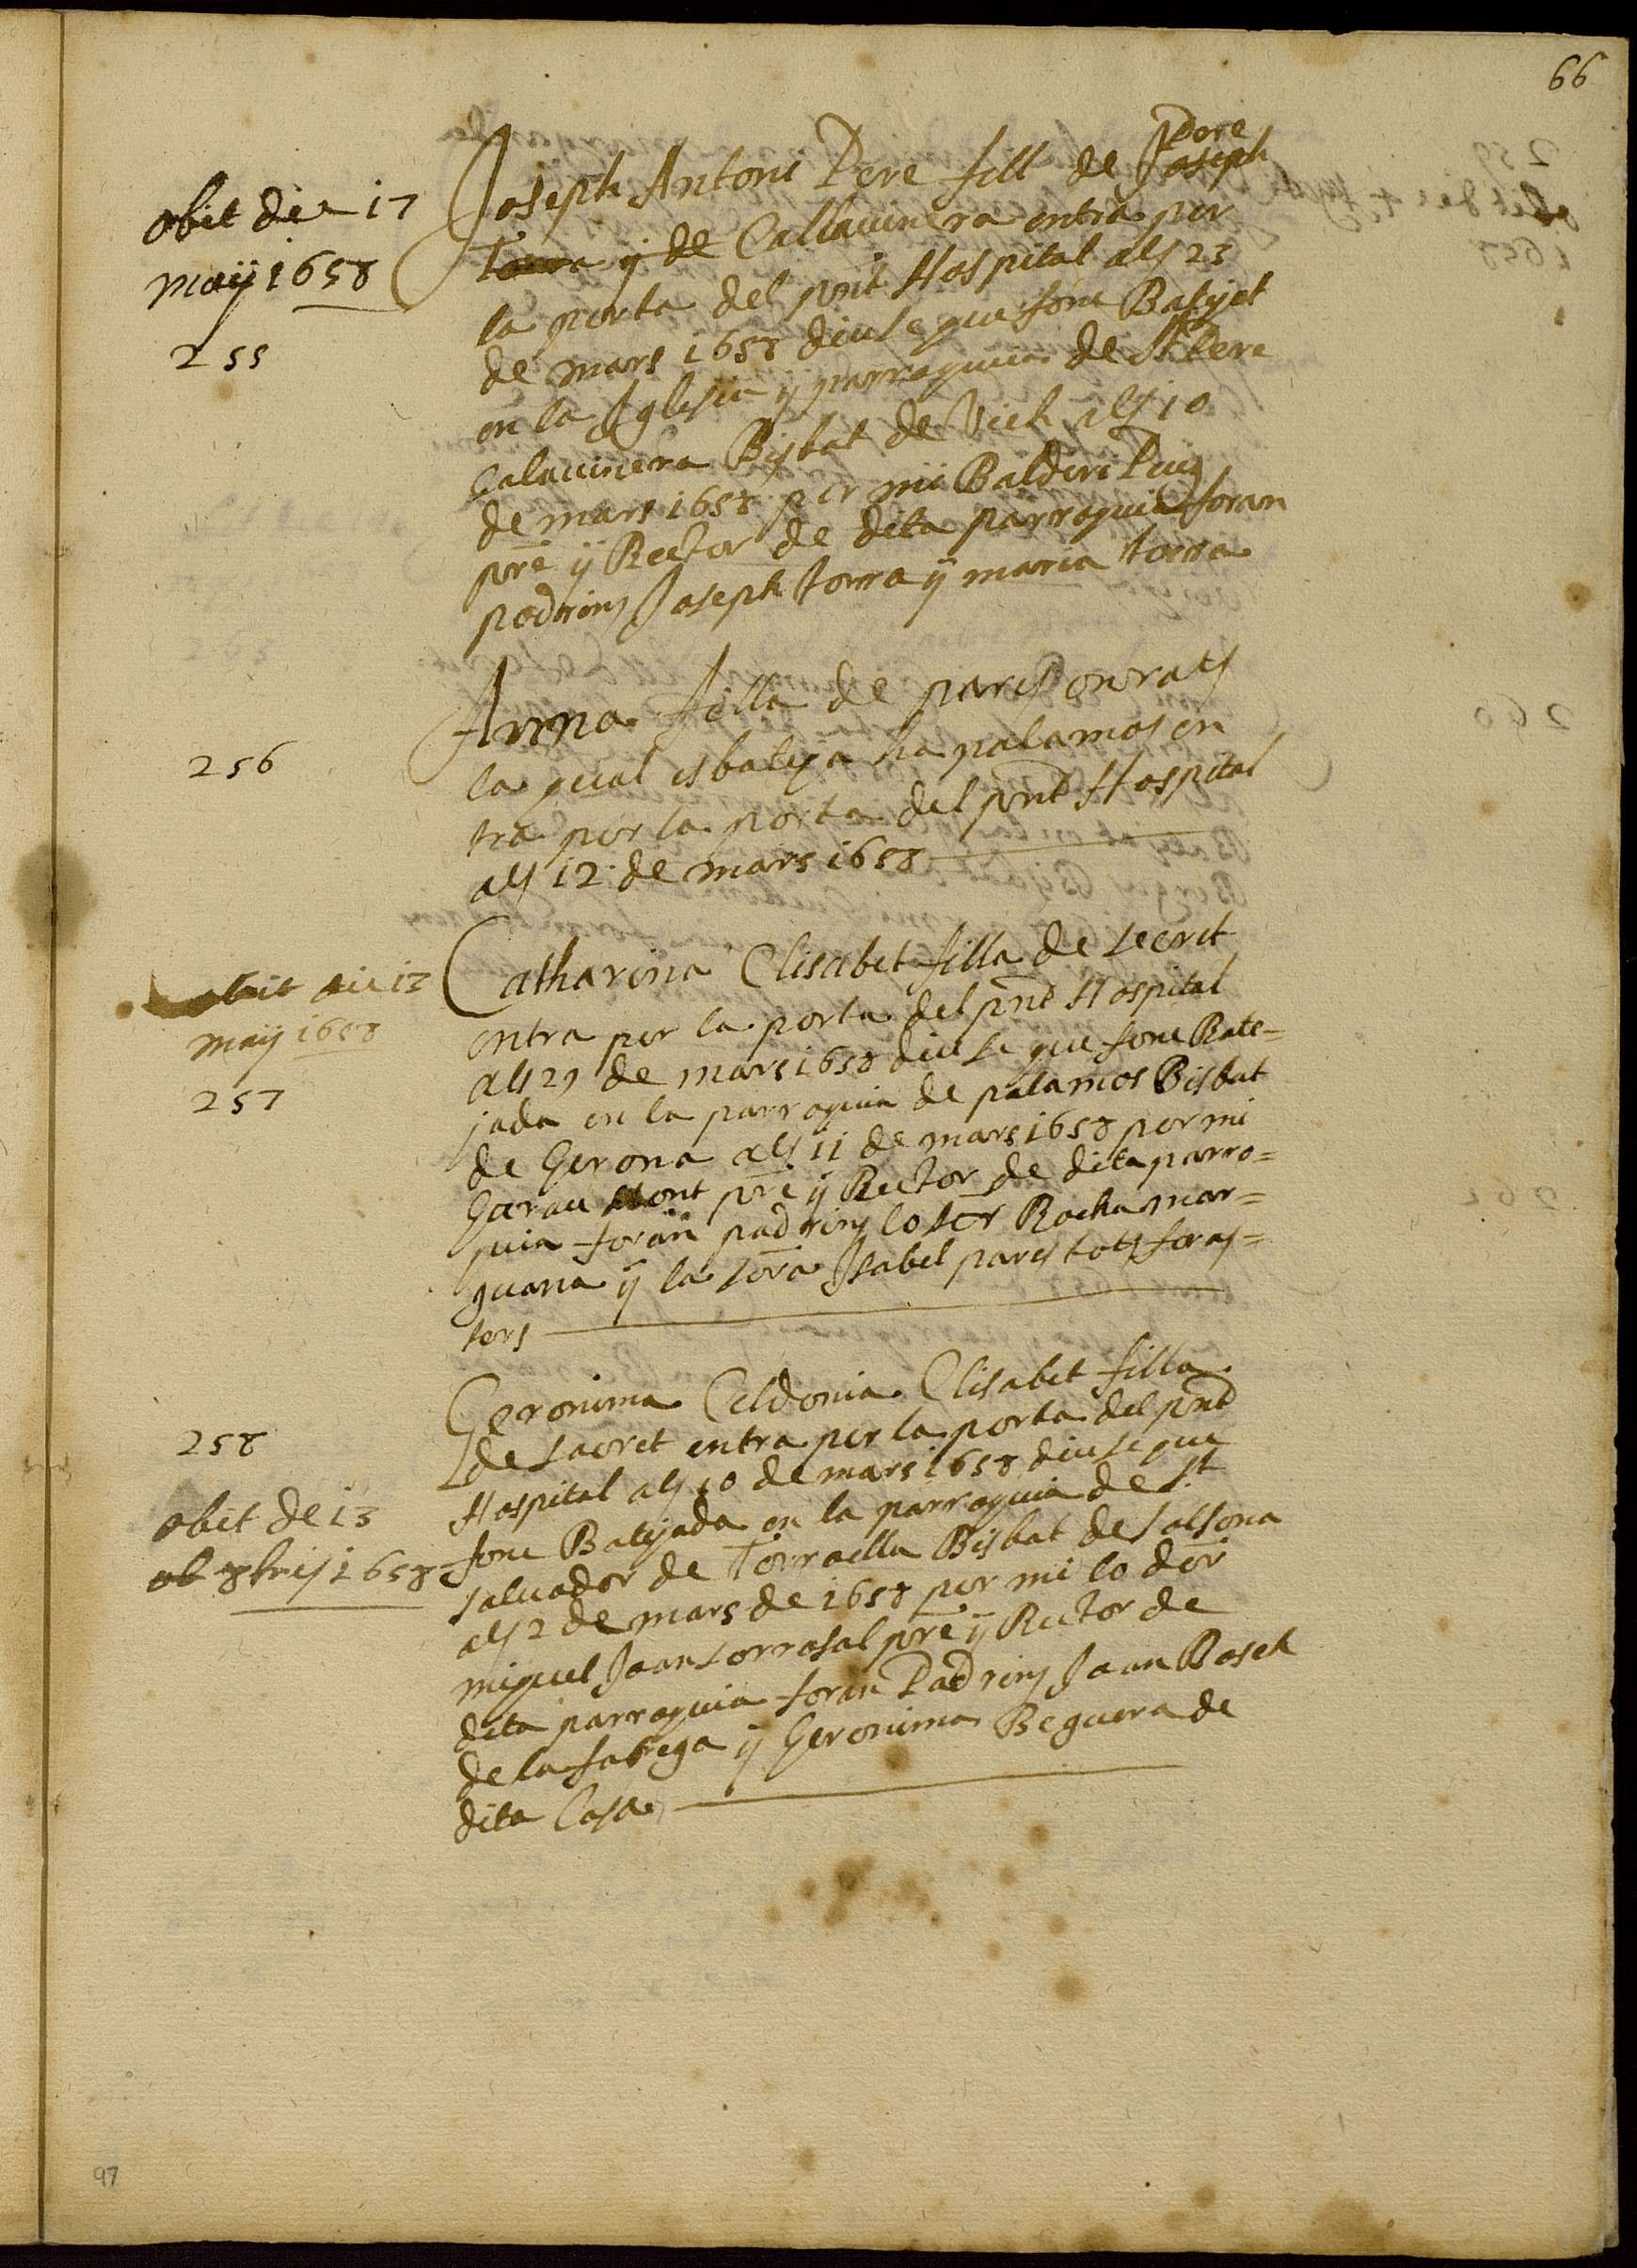 66
obit die 17
maij 1658
255
Joseph Antoni Pere fill de Joseph
Pere
Torra ÿ de Callavinera entra per
la porta del pnt Hospital als 23
de mars 1658 diuse que fonc Batejat
en la Iglesia ÿ parroquia de St Pere
Calavinera Bisbat de Vich als 10
de mars 1658 per mi Baldiri Puig
pre ÿ Rector de dita parroquia foran
padrins Joseph torra ÿ maria torra
256
Anna filla de pares onrats
la qual es bateja ha palamos en
tra per la porta del pnt Hospital
als 12 de mars 1658
obiit die 13
maij 1658
257
Catharina Elisabet filla de secret
entra per la porta del pnt Hospital
als 29 de mars 1658 diuse que fonc Bate=
jada en la parroquia de palamos Bisbat
de Gerona als 11 de mars 1658 per mi
Garau Mont pre ÿ Rector de dita parro=
quia foran padrins lo sor Rocha mar=
guana ÿ la sora Isabel pares tots foras=
ters
258
obit de 13
ob 8bris 1658
Geronima Celdonia Elisabet filla
de sacret entra per la porta del pnt
Hospital als 10 de mars 1658 diuse que
fonc Batejada en la parroquia de St
salvador de Torroella Bisbat de solsona
als 2 de mars de 1658 per mi lo dor
miquel Joan torrosal pre ÿ Rector de
dita parroquia foran Padrins Joan Bosch
de la fabrega ÿ Geronima Beguera de
dita Casa
97